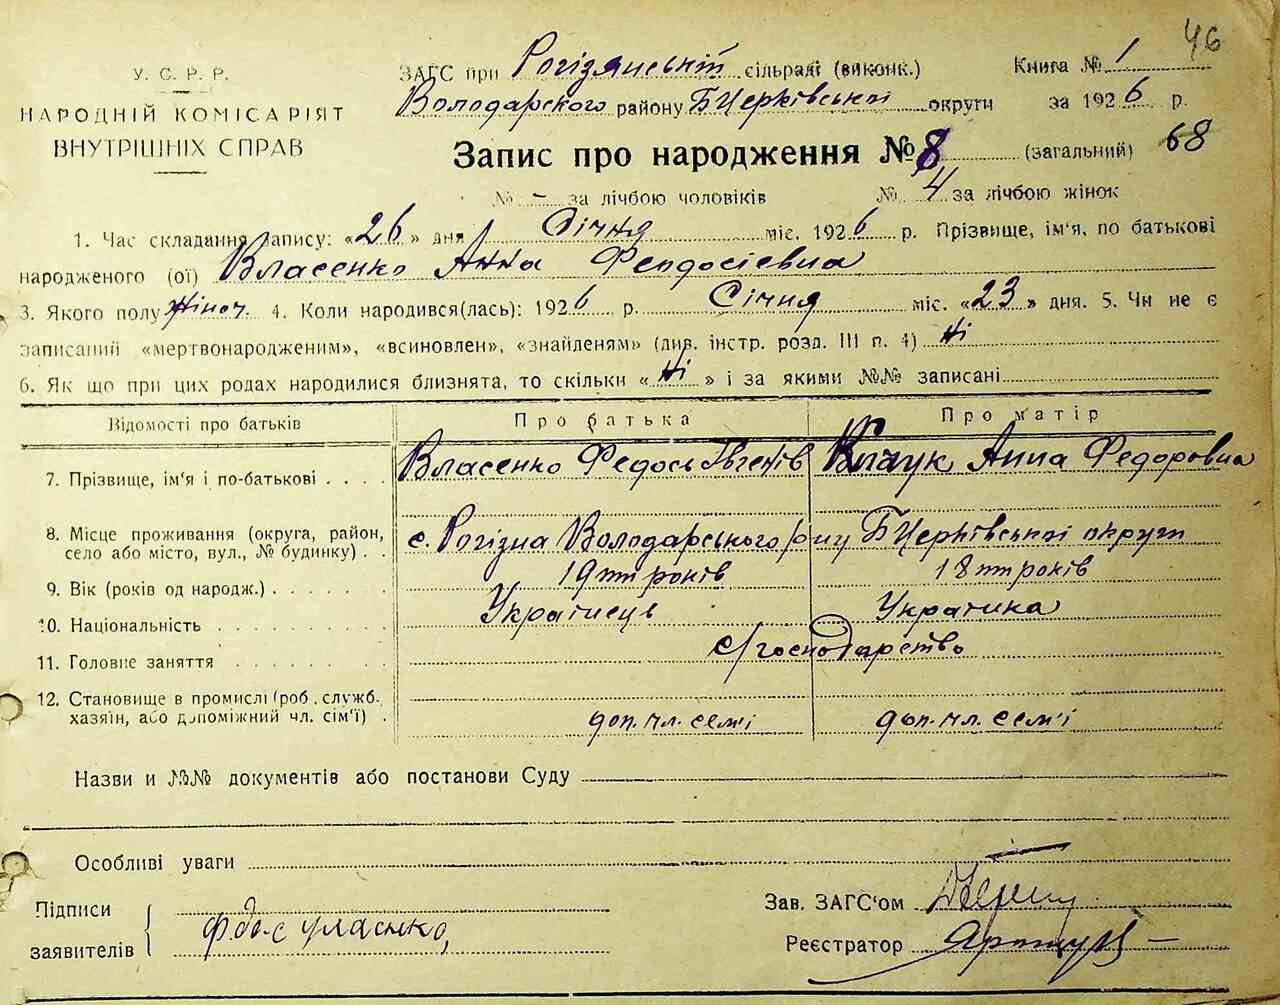 46
У. С. Р. Р.
НАРОДНІЙ КОМІСАРІЯТ
ВНУТРІШНІХ СПРАВ
ЗАГС при Рогізянській сільраді (виконк.) Книга № 1
Володарского району Б Церківської округи за 1926 р.
Запис про народження № 8 (загальний) 68
№ - за лічбою чоловіків № 4 за лічбою жінок
1. Час складання запису: «26» дня Січня міс. 1926 р. Прізвище, ім'я, по батькові
народженого (ої) Власенко Анна Феодосіевна
3. Якого полу жіноч. 4. Коли народився(лась): 1926 р. Січня міс. «23» дня. 5. Чи не є
записаний «мертвонародженим», «всиновлен», «знайденям» (див. інстр. розд. III п. 4) Ні
6. Як що при цих родах народилися близнята, то скільки «Ні» і за якими №№ записані
Відомості про батьків Про батька Про матір
7. Прізвище, ім'я і по-батькові Власенко Федось Івгенів Клочук Анна Федоровна
8. Місце проживання (округа, район,
село або місто, вул., № будинку) с. Рогізна Володарського р-ну Б Церківської округи
9. Вік (років од народж.) 19ти років 18ти років
10. Національність Українець Українка
11. Головне заняття с/господарство
12. Становище в промислі (роб., служб.
хазяін, або допоміжний чл. сім'ї) доп. чл. семʼі доп. чл. семʼі
Назви и №№ документів або постанови Суду
Особливі уваги
Підписи
заявителів
Зав. ЗАГС'ом
Реєстратор